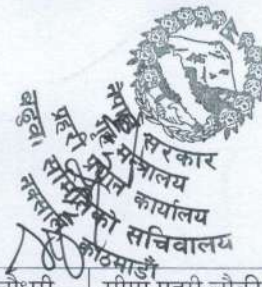 नेपाल सरकार
गृह मन्त्रालय
प्रहरी प्रधान कार्यालय
बढुवा समितिको सचिवालय
नक्साल, काठमाडौं
सीमा प्रहरी चौकी